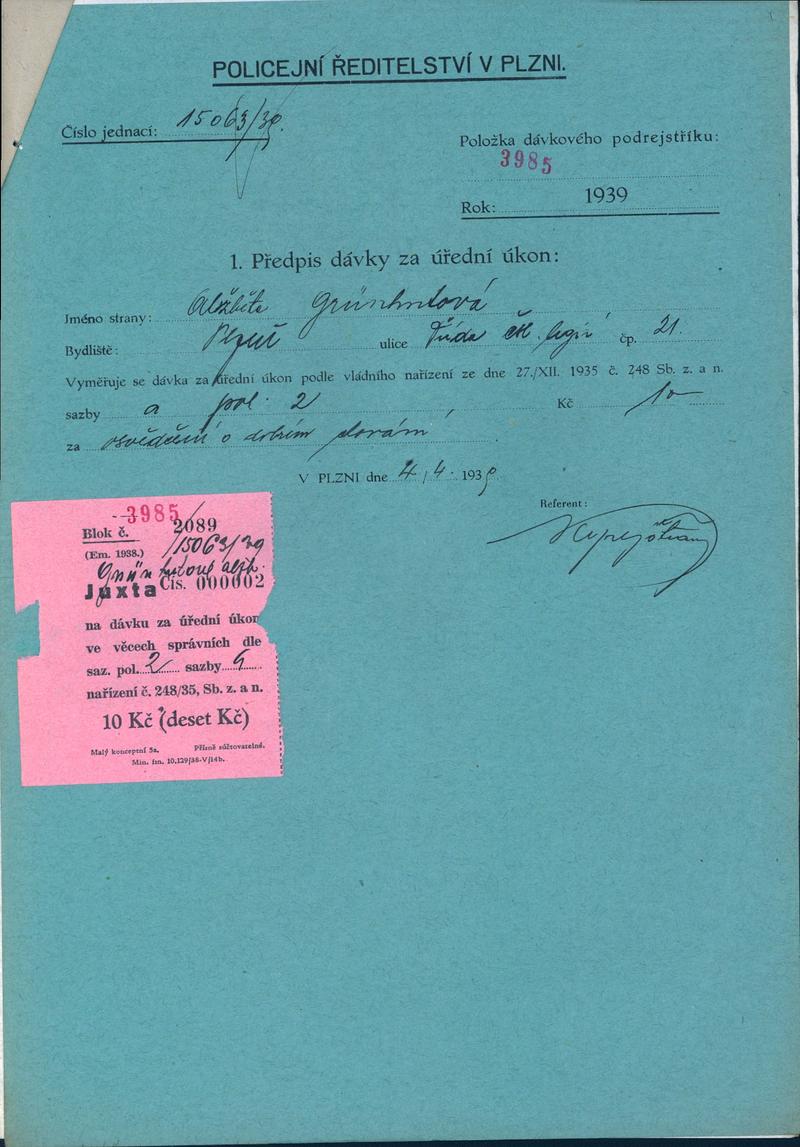 POLICEJNÍ ŘEDITELSTVÍ V PLZNI.
Číslo jednací: 15063/39.
Položka dávkového podrejstříku:
3985
Rok: 1939
1. Předpis dávky za úřední úkon:
Jméno strany: Alžběta Grünhutová
Bydliště: Plzeň ulice Třída čsl. legií čp. 21.
Vyměřuje se dávka za úřední úkon podle vládního nařízení ze dne 27./XII. 1935 č. 248 Sb. z. a n.
sazby a pol. 2 Kč 10
za osvědčení o dobrém chování
V PLZNI dne 4/4. 1939
Referent:
3985
Blok č. 2089
(Em. 1938.) 15063/39
Grünhutová Alžb.
Juxta Čís. 000002
na dávku za úřední úkon
ve věcech správních dle
saz. pol. 2 sazby a
nařízení č. 248/35, Sb. z. a n.
10 Kč (deset Kč)
Malý konceptní 5a. Přísně súčtovatelné.
Min. fin. 10.129/38-V/14b.